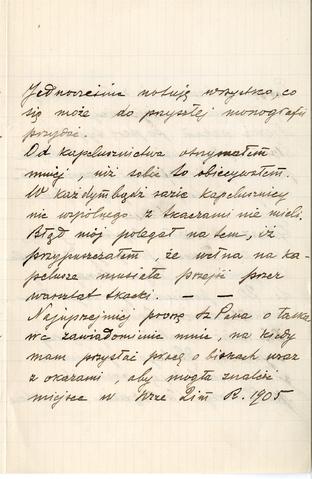 Jednocześnie notuję wszystko, co
się może do przyszłej monografii
przydać.
Od kapelusznictwa otrzymałem
mniej, niż sobie to obiecywałem.
W każdym bądź razie kapelusznicy
nic wspólnego z tkaczami nie mieli.
Błąd mój polegał na tem, iż
przypuszczałem, że wełna na ka-
pelusze musiała przejść przez
warsztat tkacki. — —
Najuprzejmiej proszę Sz Pana o łaska
we zawiadomienie mnie, na kiedy
mam przysłać pracę o wraz
z okazami, aby mogła znaleść
miejsce w R. 1905